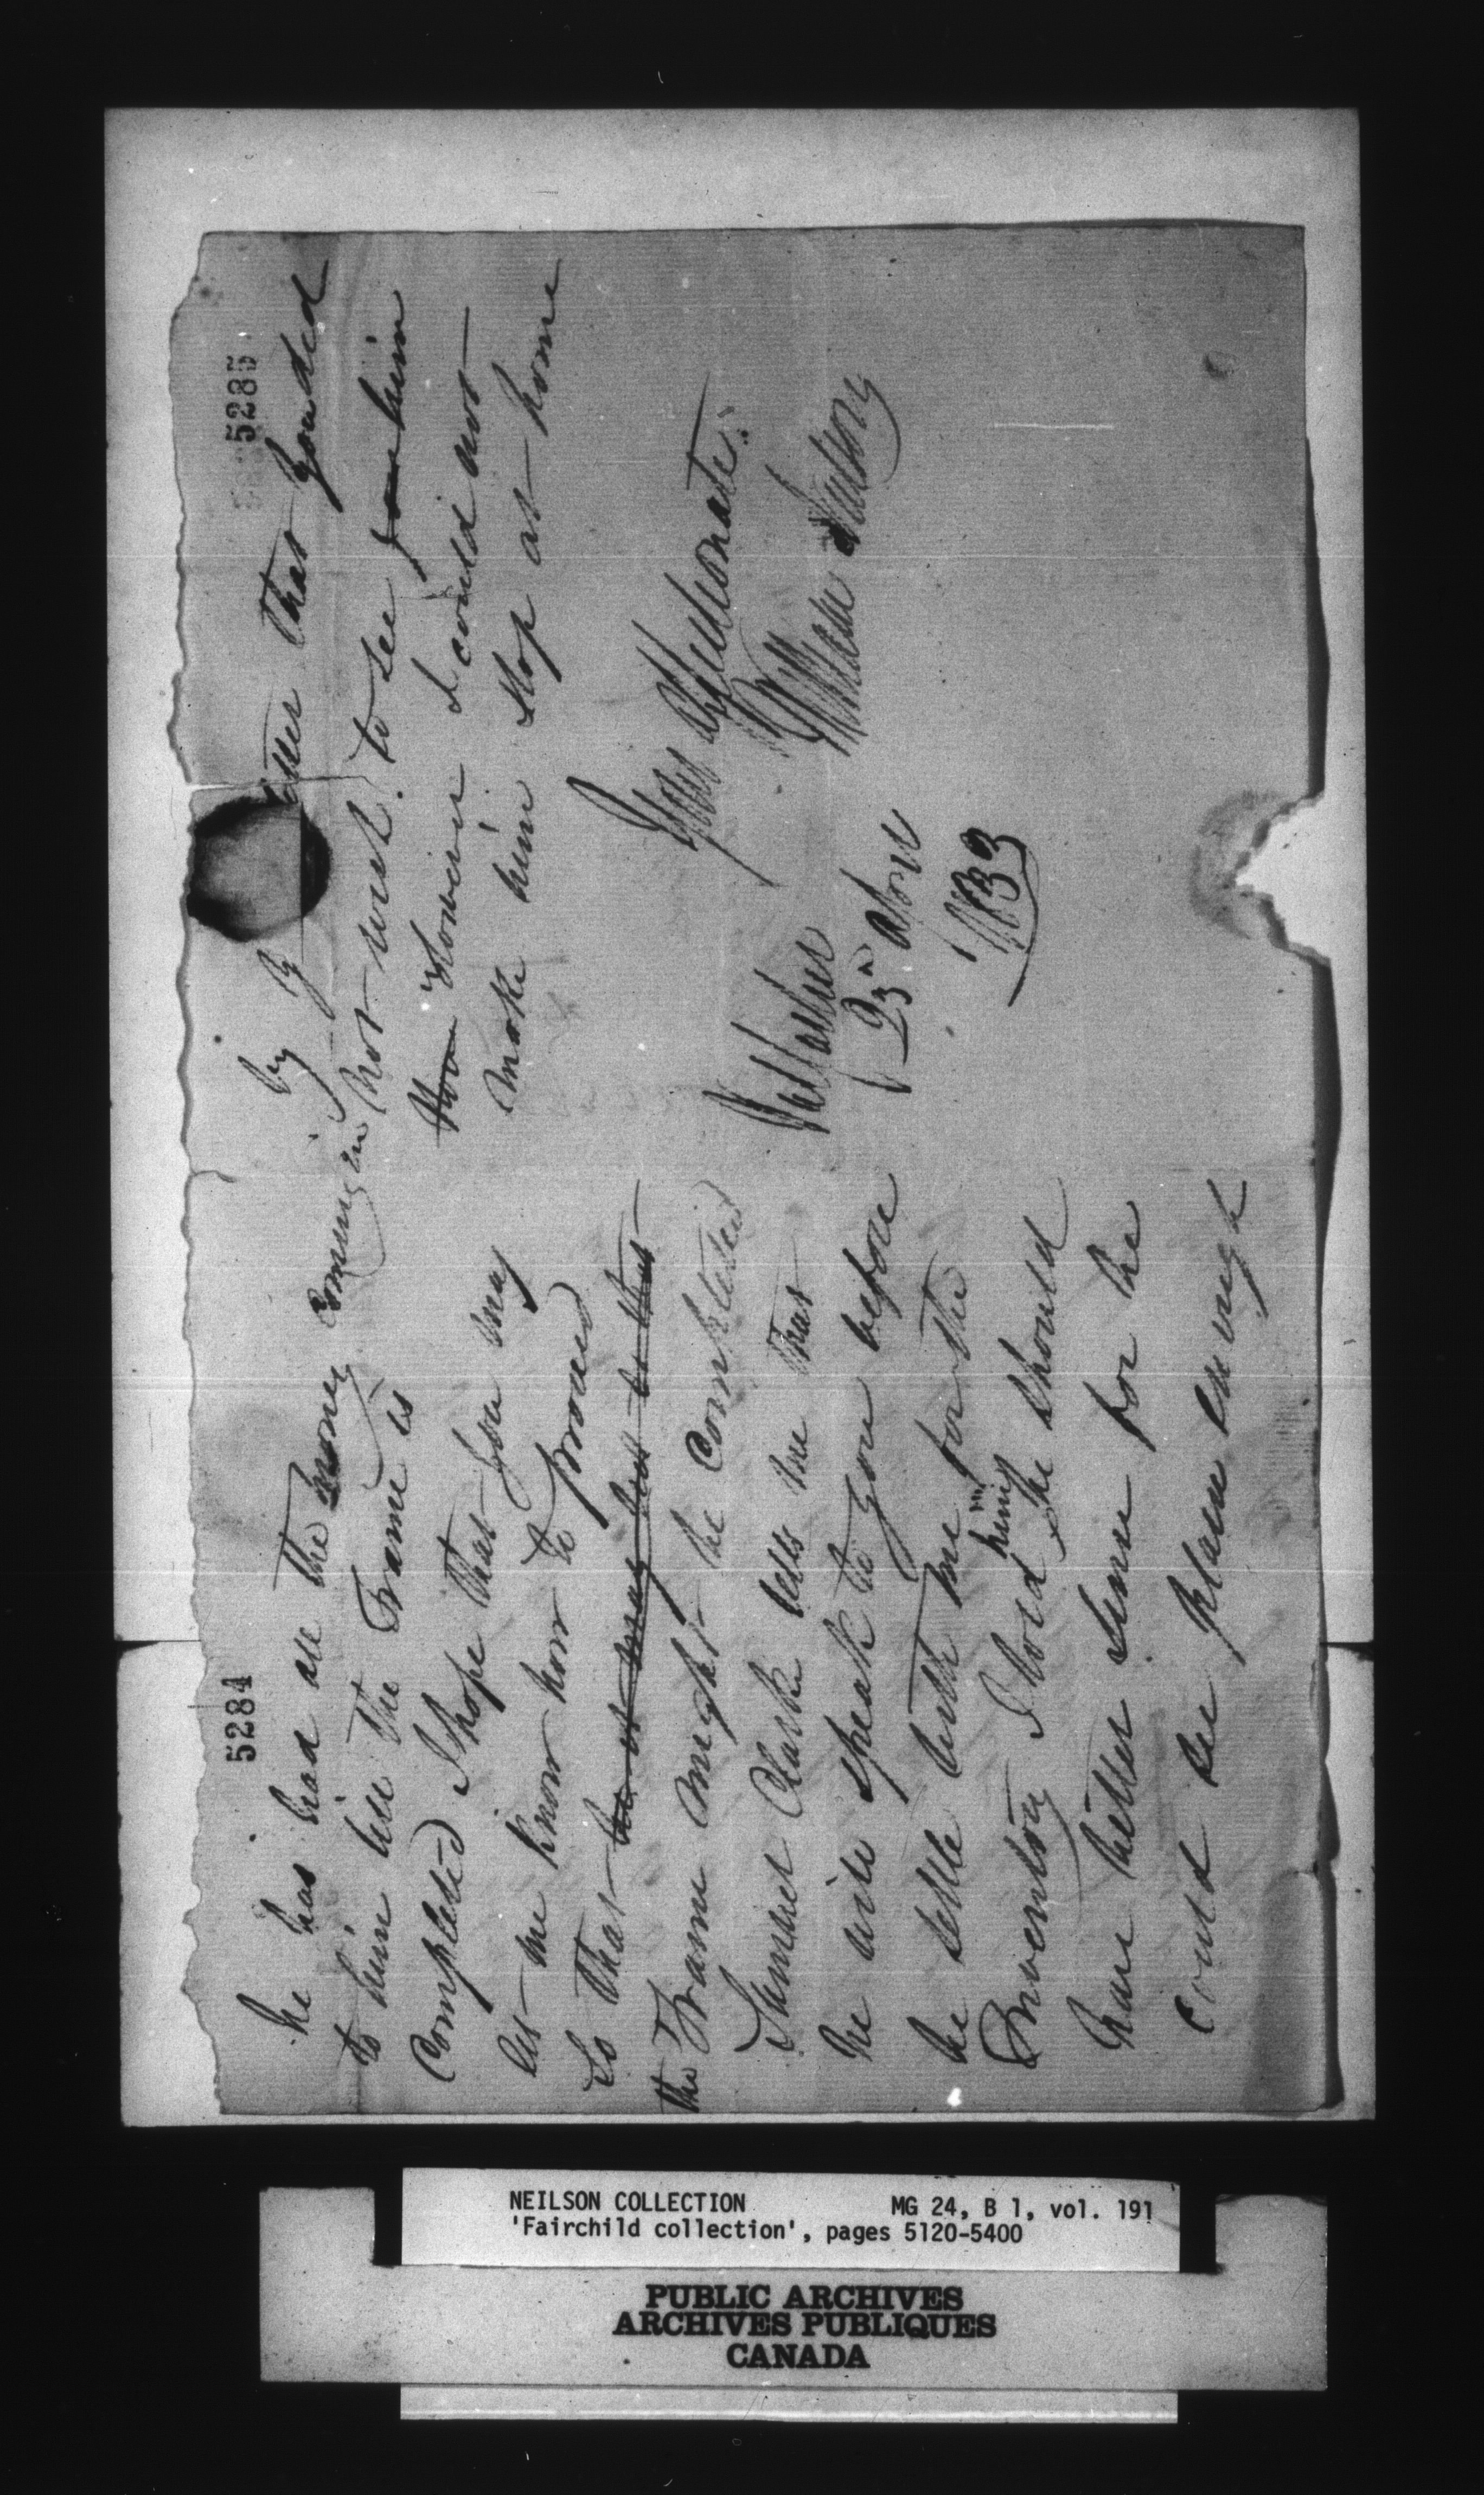 5284
he has had all the money Comming
to him till the Frame is
Completed I hope that you may
let me know how to proceed
So that be it may but be that
the Frame might be Completed
Samuel Clark tells me that
he will speak to you before
he settle with me for the
Inventory I told him he should
have better sense for he
could see plain enough
5285
by y etter that you did
in not wish to see him
How However I could not
make him stop at home
Your Affectionate
William Neilson
Valcartier
23 April
1833
NEILSON COLLECTION MG 24, B 1, vol. 191
'Fairchild collection', pages 5120-5400
PUBLIC ARCHIVES
ARCHIVES PUBLIQUES
CANADA